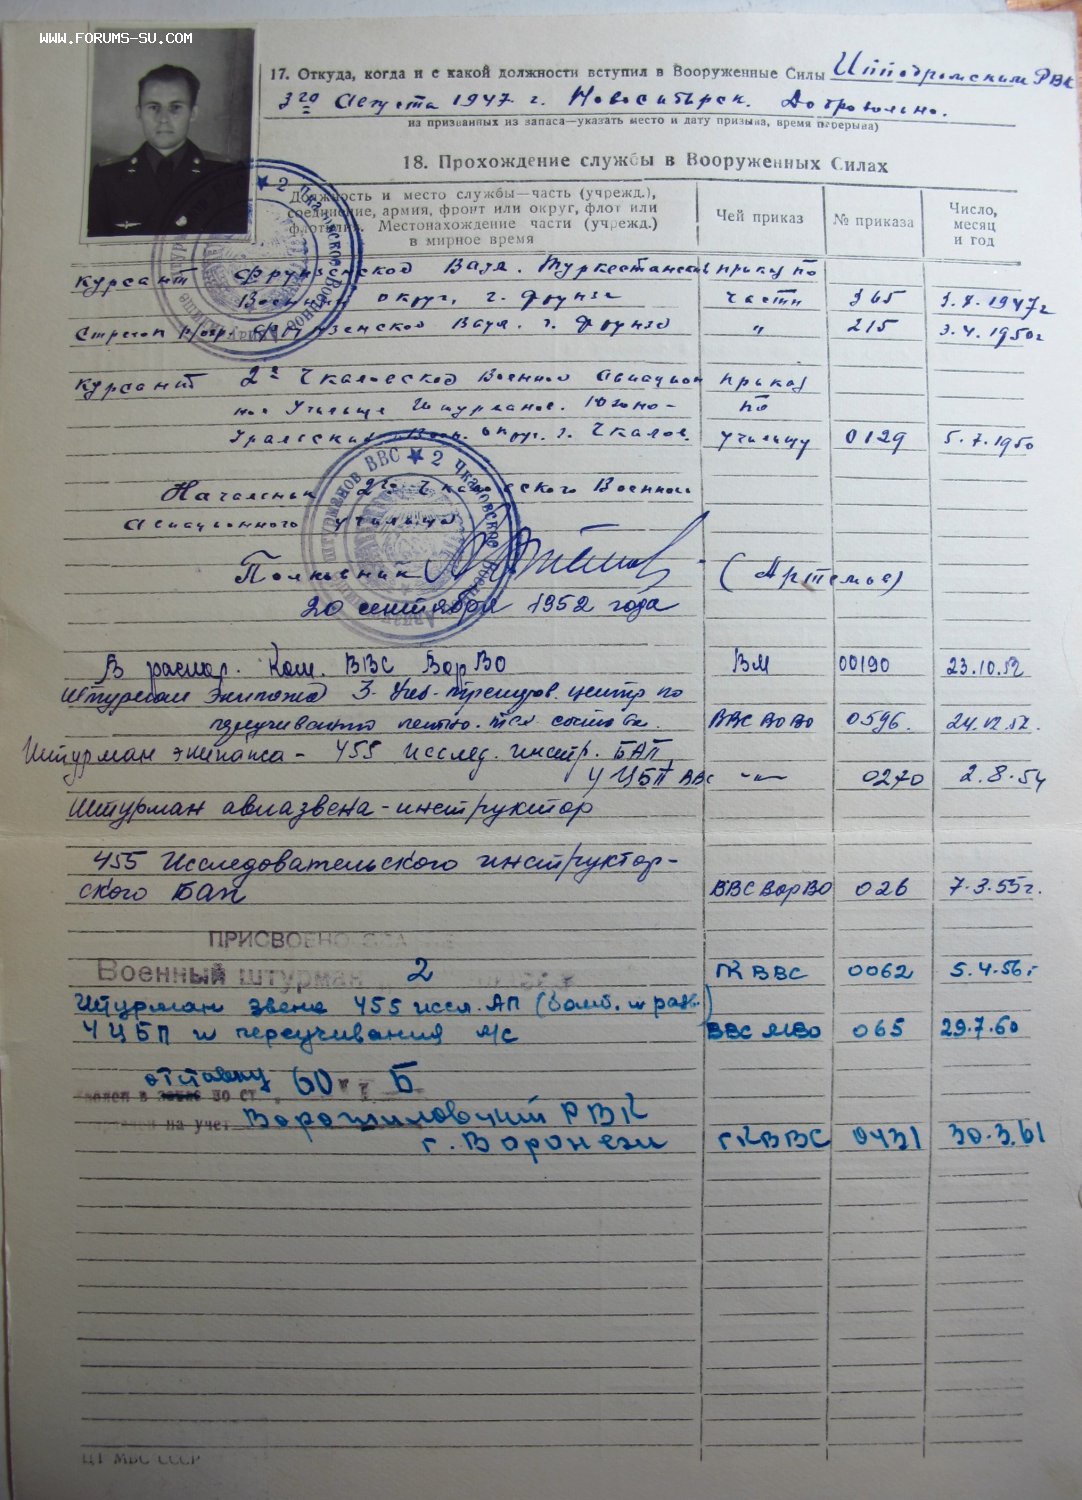 WWW.FORUMS-SU.COM
17. Откуда, когда и с какой должности вступил в Вооруженные Силы Ипподромским РВК
3го Августа 1947 г. Новосибирск. Добровольно.
из призванных из запаса—указать место и дату призыва, время перерыва)
18. Прохождение службы в Вооруженных Силах
Должность и место службы—часть (учрежд.), соединение, армия, фронт или округ, флот или флотилия. Местонахождение части (учрежд.) в мирное время
Чей приказ
№ приказа
Число, месяц и год
Курсант Фрунзенской Ваул. Туркестанский приказ по
Военный округ, г. Фрунзе части 365 3.8.1947г
Фрунзенской Ваул. г. Фрунзе " 215 3.4.1950г
Курсант 2го Чкаловской Военной Авиацион приказ
ное Училище Штурманов. Южно- по
Уральский Воен. округ. г. Чкалов. училищу 0129 5.7.1950
Начальник 2го Чкаловского Военного
Авиационного училища
Полковник (Артемьев)
20 сентября 1952 года
2 Чкаловское Военное Авиац Училище штурманов ВВС
В распор. Ком. ВВС ВорВО ВМ 00190 23.10.52
Штурман Экипажа 3 Учб-трениров. центр по
переучиванию летно. тех состава. ВВС ВоВО 0596. 24.12.52.
Штурман экипажа - 455 исслед. инстр. БАП
4 ЦБП ВВС -"- 0270 2.8.54
Штурман авиазвена-инструктор
455 Исследовательского инструктор-
ского Бап ВВС ВорВО 026 7.3.55г.
ПРИСВОЕНО
Военный штурман 2 ГК ВВС 0062 5.4.56г
Штурман звена 455 иссл. АП (бомб. и разв.)
4 ЦБП и переучивания л/с ВВС МВО 065 29.7.60
отставку 60 Б
в по ст.
на учет Ворошиловский РВК
г. Воронежи ГКВВС 0431 30.3.61
ЦТ МВС СССР